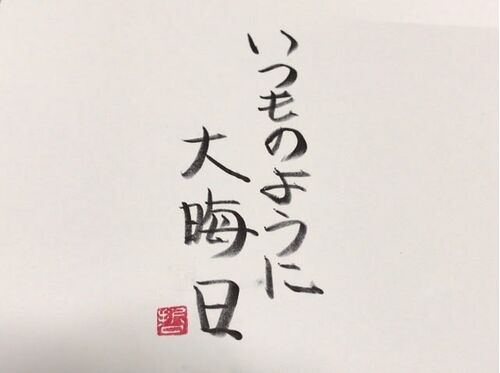 いつものように
大晦日
哲